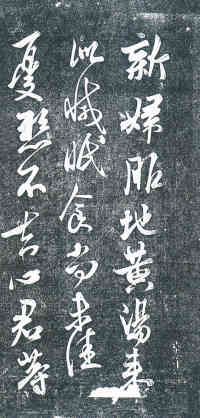 新婦服地黃湯來
似減眠食尚未佳
憂懸不去心君等